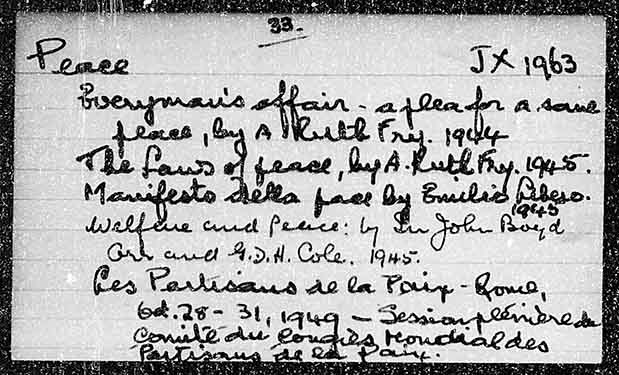 33.
Peace JX 1963
Everyman's affair - a plea for a sane
peace, by A Ruth Fry. 1944
The Laws of peace, by A. Ruth Fry. 1945.
Manifesto della pace by Emilio
1945
Welfare and Peace: by Sir John Boyd
Orr and G.D.H. Cole. 1945.
Les Partisans de la Paix - Rome,
Oct. 28 - 31, 1949 - Session plénière du
Comité du Congrès Mondial des
Partisans de la Paix.